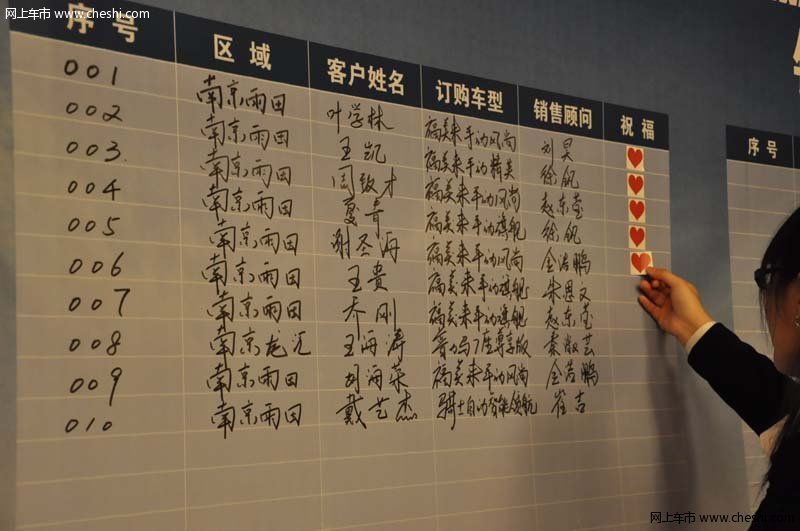 网上车市 www.cheshi.com
序号 区域 客户姓名 订购车型 销售顾问 祝福
001 南京雨田 叶学林 福美来手动风尚 刘昊
002 南京雨田 王凯 福美来手动精英 徐帆
003 南京雨田 周致才 福美来手动风尚 赵东莹
004 南京雨田 夏青 福美来手动旗舰 徐帆
005 南京雨田 谢圣海 福美来手动风尚 金浩鹏
006 南京雨田 王贵 福美来手动旗舰 朱思文
007 南京雨田 乔刚 福美来手动旗舰 赵东莹
008 南京龙汇 王海涛 普力马7座尊享版 秦淑芸
009 南京雨田 胡海荣 福美来手动风尚 金浩鹏
010 南京雨田 戴艺杰 骑士自动智能领航 崔吉
序号
网上车市 www.cheshi.com